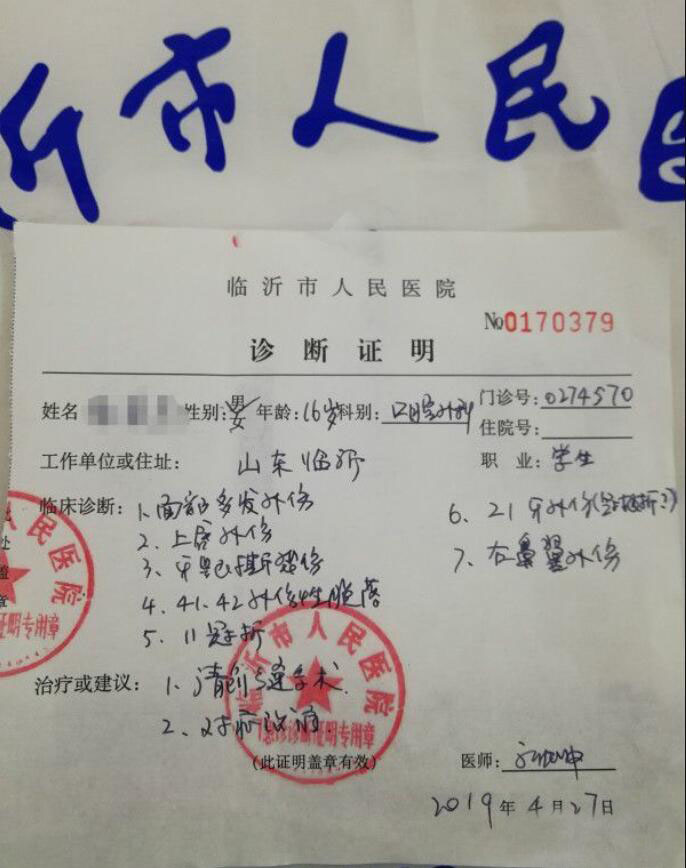 沂市人民医
临沂市人民医院
No0170379
诊断证明
姓名 性别:男女 年龄:16岁 科别:口腔外科 门诊号:0274570
住院号:
工作单位或住址: 山东临沂 职业:学生
临床诊断: 1、面部多发外伤
2、上唇外伤
3、牙龈撕裂伤
4、41、42外伤性脱落
5、11冠折
6、21牙外伤(冠根折?)
7、右鼻翼外伤
治疗或建议: 1、清创缝合术
2、对症治疗
(此证明盖章有效)
医师:
2019年4月27日
沂市人民医院
诊断证明专用章
人民医院
证明专用章
处
盖
章